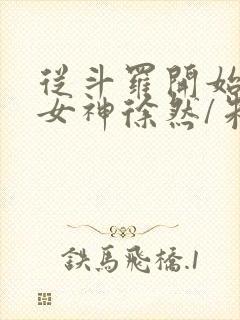 從斗羅開始
女神徐然/
鉄馬飛橋.1